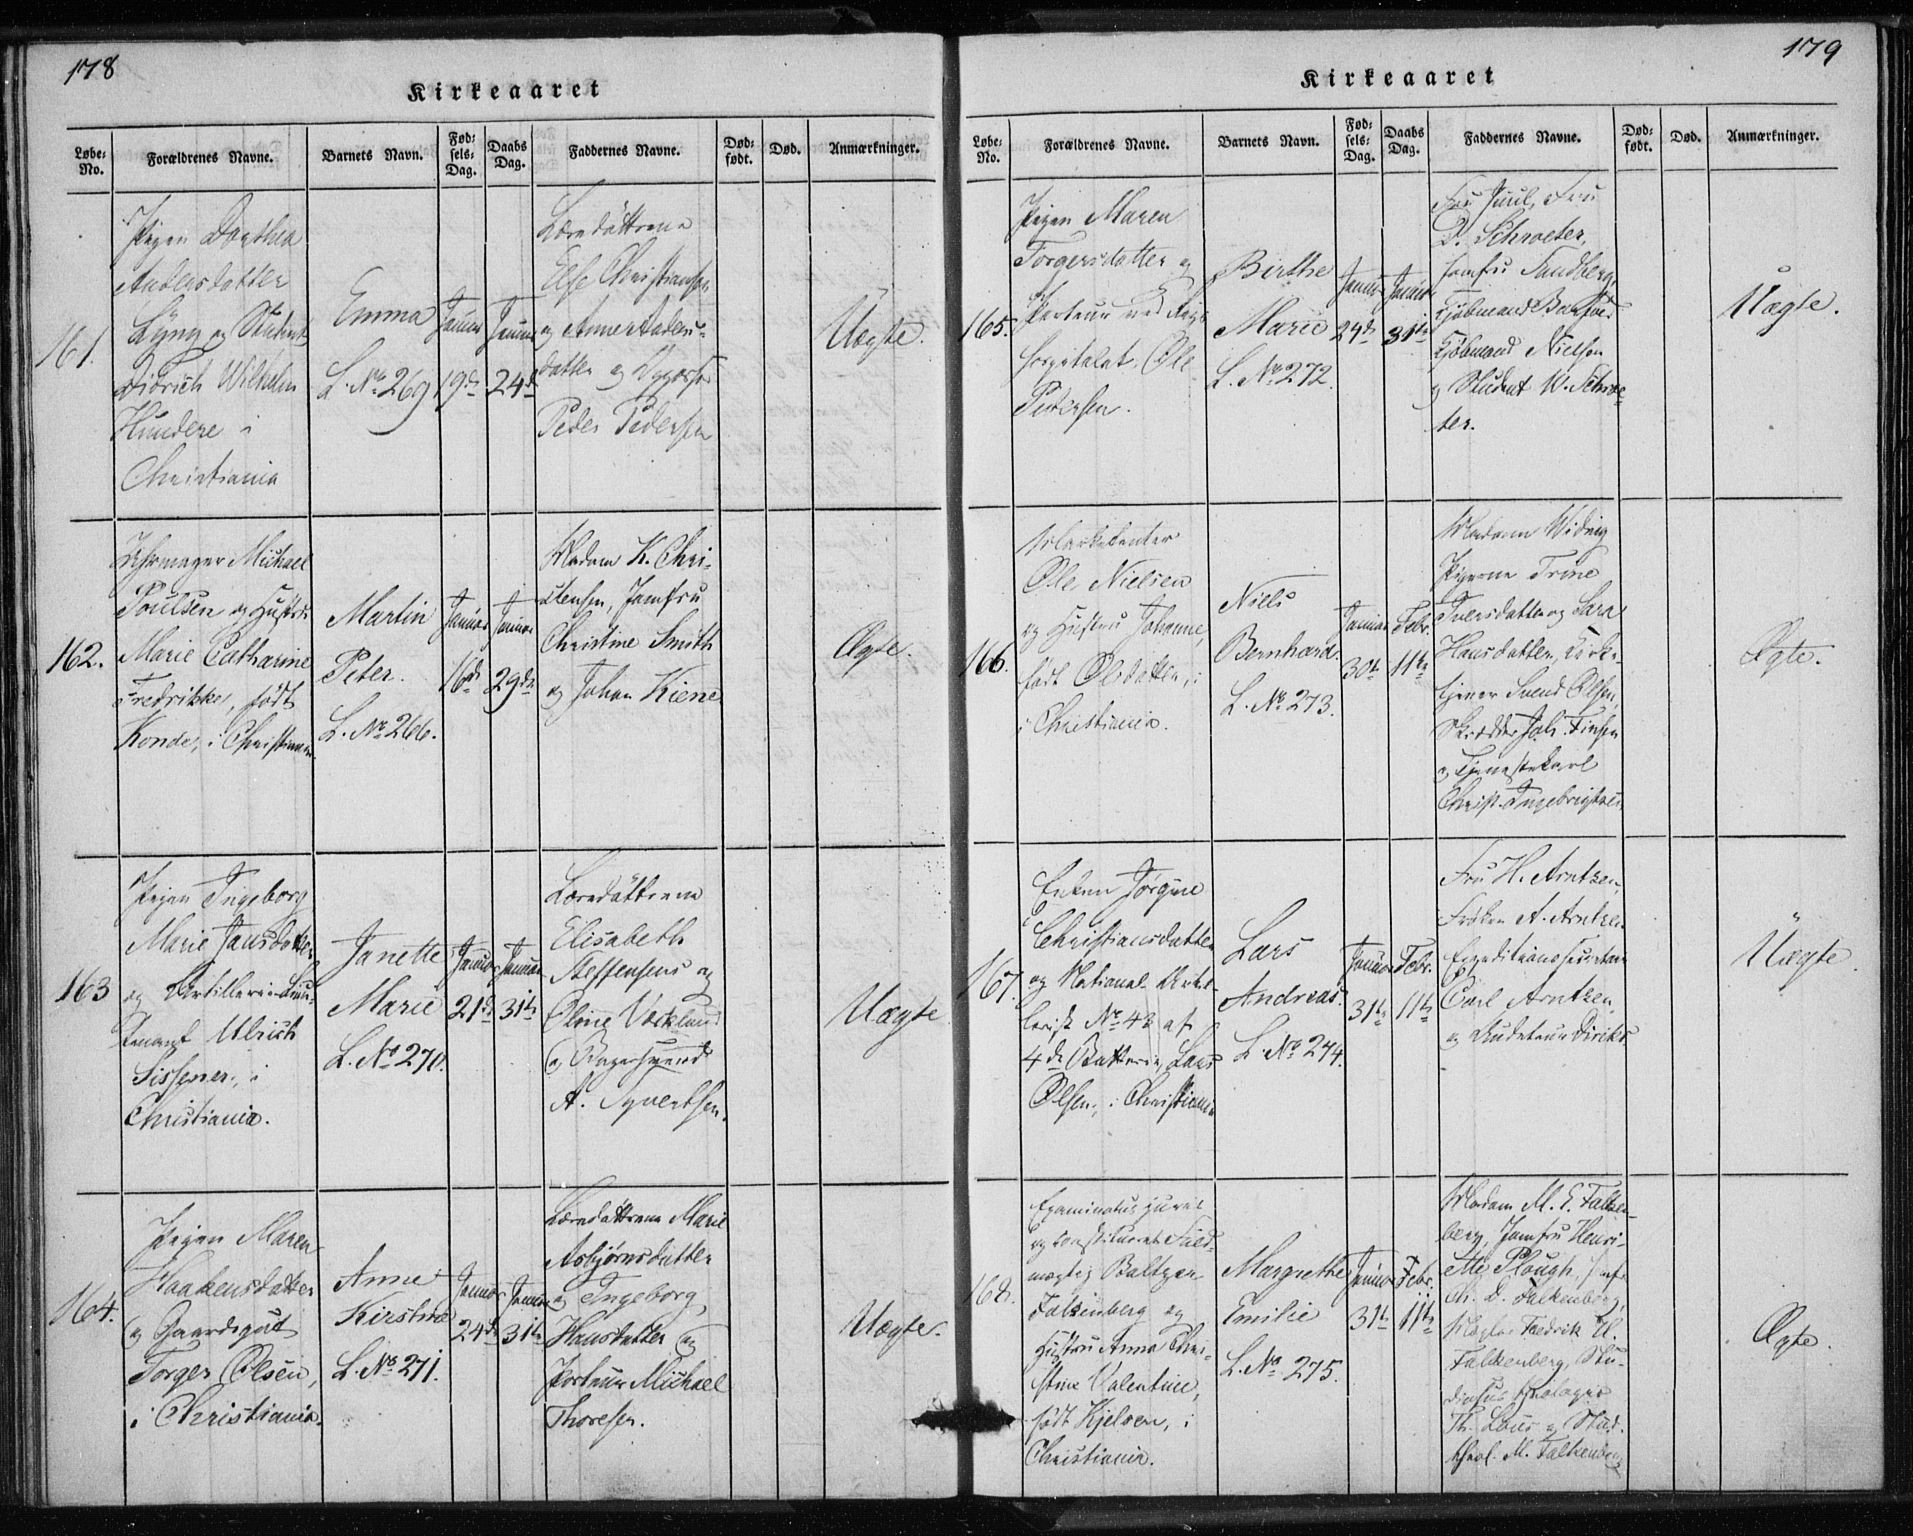 178
Kirkeaaret
Løbe-No. Forældrenes Navne. Barnets Navn. Fødsels-Dag. Daabs Dag. Faddernes Navne. Død-født. Død. Anmærkninger.
161.
Pigen Dorthea
Andersdatter
Lÿng og Student
Didrich Wilhelm
Hundere i
Christiania
Emma
L. No 269
Januar
19de
Januar
24de
Læredöttrene
Else Christiansen
og Anne Anders-
datter og
Peder Pedersen
Uægte.
162.
Uhrmager Michael
Poulsen og Hustru
Marie Catharine
Fredrikke, født
Konder, i Christiania
Martin
Peter.
L. No 266.
Januar
16de
Januar
29de
Madam K. Chri-
stensen, Jomfru
Christine Smith
og Johan Kiene
Ægte.
163
Pigen Ingeborg
Marie Jansdatter
og Artillerie-Lieu-
tenant Ulrich
Sissener, i
Christiania.
Janette
Marie
L. No 270.
Januar
21de
Januar
31te
Læredöttrene
Elisabeth
Steffensens og
Oline
og Bagersvend
A. Syvertsen.
Uægte
164.
Pigen Maren
Haakensdatter
og Gaardsgut
Torger Olsen,
i Christiania.
Anne
Kirstine
L. No 271.
Januar
24de
Januar
31te
Læredöttrene Marie
Asbjørnsdatter
og Ingeborg
Hansdatter og
Porteur Michael
Thoresen.
Uægte.
179
Kirkeaaret
Løbe-No. Forældrenes Navne. Barnets Navn. Fødsels-Dag. Daabs Dag. Faddernes Navne. Død-født. Død. Anmærkninger.
165.
Pigen Maren
Torgersdatter og
Porteur ved Rigs
hospitalet Ole
Pedersen.
Birthe
Marie
L. No 272.
Januar
24de
Januar
31te
Fru Juul, Fru
D. Schroeter,
Jomfru Sundberg,
Kjøbmand
Kjøbmand Nielsen
og Student W. Schroe-
ter.
Uægte.
166.
Marketenter
Ole Nielsen
og Hustru Johanne,
født Olsdatter, i
Christiania.
Niels
Bernhard.
L. No 273.
Januar
30te
Febr.
11te
Madam Widvig
Pigerne Trine
Iversdatter og Sara
Hansdatter, Kirke-
tjener Svend Olsen,
Skrædder Joh. Finsen
og Tjenestekarl
Christ. Ingebrigtsen
Ægte.
167.
Enken Jørgine
Christiansdatter
og National Artil-
lerist No 42 af
4de Batterie, Lars
Olsen, i Christiania
Lars
Andreas.
L. No 274.
Januar
31te
Febr.
11te
Fru H. Arntzen,
Frøken A. Arntzen
Expeditionssecretair
Carl Arntzen,
og Auditeur Diriks
Uægte.
168.
Examinatus juris
og constitueret Fuld-
mægtig Baltzer
Falkenberg og
Hustru Anna Chri-
stine Valentine,
født Kjelsen, i
Christiania.
Margrethe
Emilie
L. No 275.
Januar
31te
Febr.
11te
Madam M. E. Falken-
berg, Jomfru Henri-
ette Plough, Jomfr.
Ch. D. Falkenberg,
Fredrik U.
Falkenberg, Stu-
diosus theologiæ
Th. Lous og Stud.
theol. M. Falkenberg
Ægte.